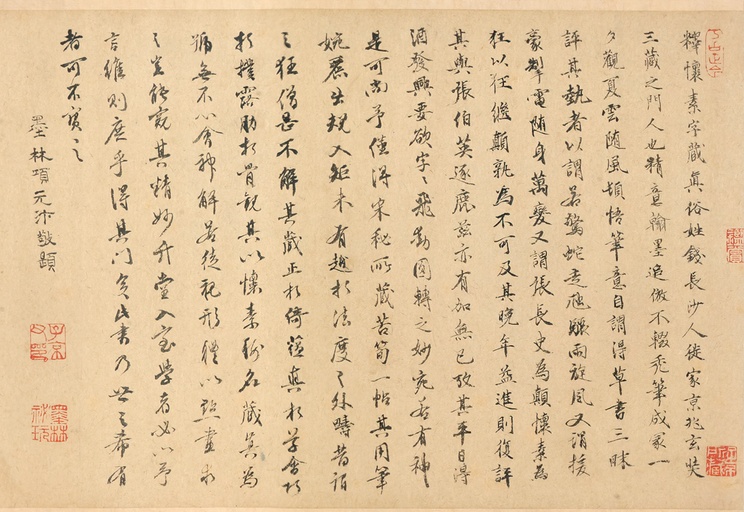 釋懷素字藏真俗姓錢長沙人徙家京兆玄奘
三藏之門人也精意翰墨追倣不輟禿筆成冢一
夕觀夏雲隨風頓悟筆意自謂得草書三昧
評其執者以謂若驚蛇走虺驟雨旋風又謂援
豪掣電隨身萬變又謂張長史為顛懷素為
狂以狂繼顛孰為不可及其晚年益進則復評
其與張伯英逐鹿茲亦有加無已故其平日得
酒發興要欲字字飛動圓轉之妙宛若有神
是可尚予值得宋秘所藏苦筍一帖其用筆
婉麗出規入矩未有越於法度之外疇昔謂
之狂僧甚不解其藏正於倚蘊真於草
於撲露肋於骨觀其以懷素稱名藏真為
號無不心會神解若徒視形體以點畫求
之豈能究其精妙升堂入室學者必以予
言維則庶乎得其門矣此書乃世之希有
者可不寶之
墨林項元汴敬題
子京父印
墨林祕玩